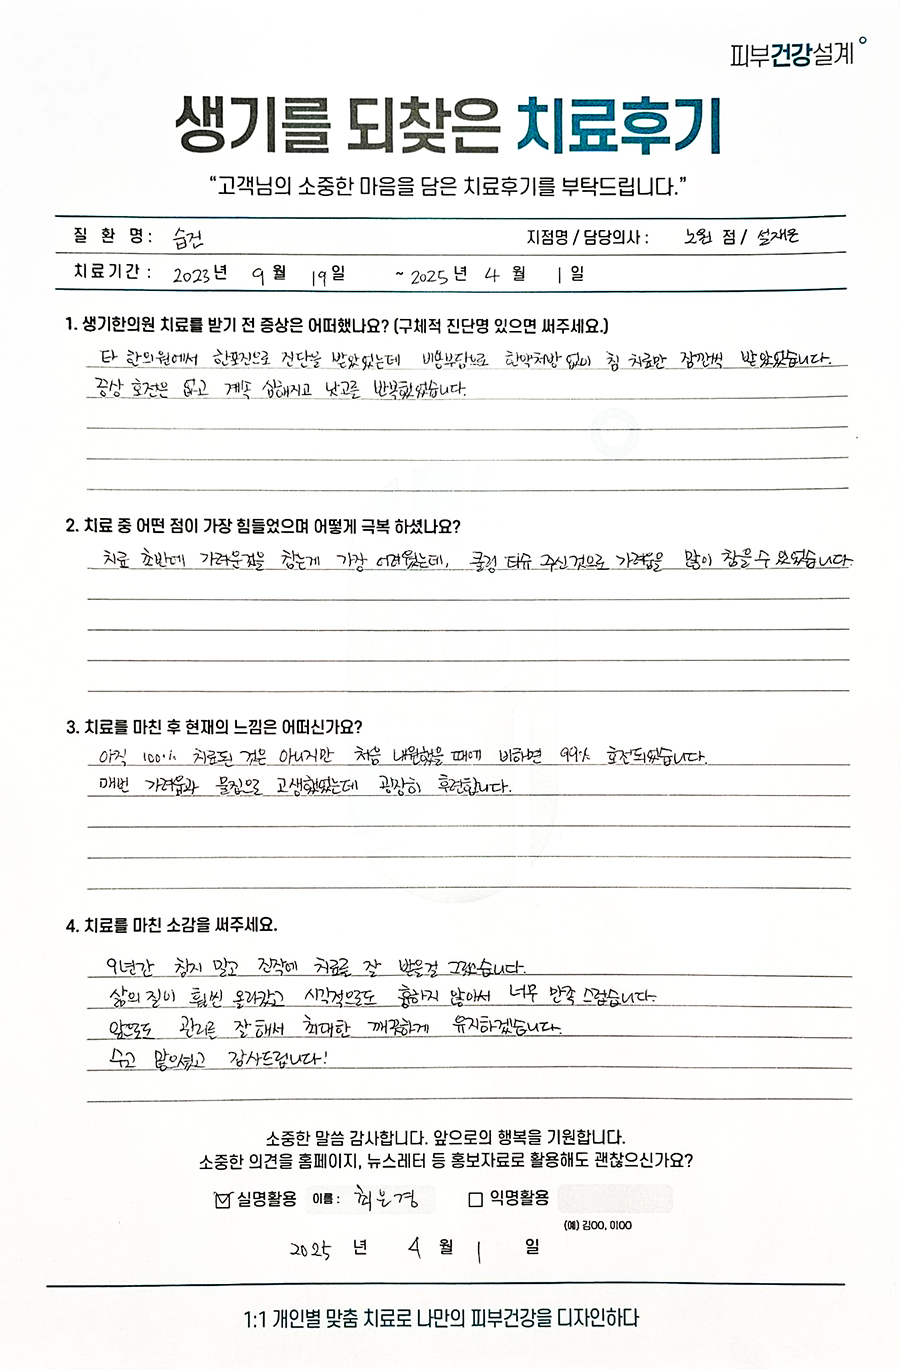 피부건강설계
생기를 되찾은 치료후기
“고객님의 소중한 마음을 담은 치료후기를 부탁드립니다.”
질 환 명 : 습진 지점명 / 담당의사 : 노원 점 / 설재은
치료기간 : 2023년 9월 19일 ~ 2025년 4월 1일
1. 생기한의원 치료를 받기 전 증상은 어떠했나요? (구체적 진단명 있으면 써주세요.)
타 한의원에서 한포진으로 진단을 받았었는데 비용부담으로 한약처방 없이 침 치료만 잠깐씩 받았었습니다.
증상 호전은 없고 계속 심해지고 낫고를 반복했었습니다.
2. 치료 중 어떤 점이 가장 힘들었으며 어떻게 극복 하셨나요?
치료 초반에 가려운것을 참는게 가장 어려웠는데, 쿨링 티슈 주신 것으로 가려움을 많이 참을 수 있었습니다.
3. 치료를 마친 후 현재의 느낌은 어떠신가요?
아직 100% 치료된 것은 아니지만 처음 내원했을 때에 비하면 99% 호전되었습니다.
매번 가려움과 물집으로 고생했었는데 굉장히 후련합니다.
4. 치료를 마친 소감을 써주세요.
9년간 참지 말고 진작에 치료를 잘 받을걸 그랬습니다.
삶의 질이 훨씬 올라갔고 시각적으로도 흉하지 않아서 너무 만족 스럽습니다.
앞으로도 관리를 잘 해서 최대한 깨끗하게 유지하겠습니다.
수고 많으셨고 감사드립니다!
소중한 말씀 감사합니다. 앞으로의 행복을 기원합니다.
소중한 의견을 홈페이지, 뉴스레터 등 홍보자료로 활용해도 괜찮으신가요?
실명활용 이름 : 최은경 익명활용
(예) 김OO, 이OO
2025 년 4 월 1 일
1:1 개인별 맞춤 치료로 나만의 피부건강을 디자인하다